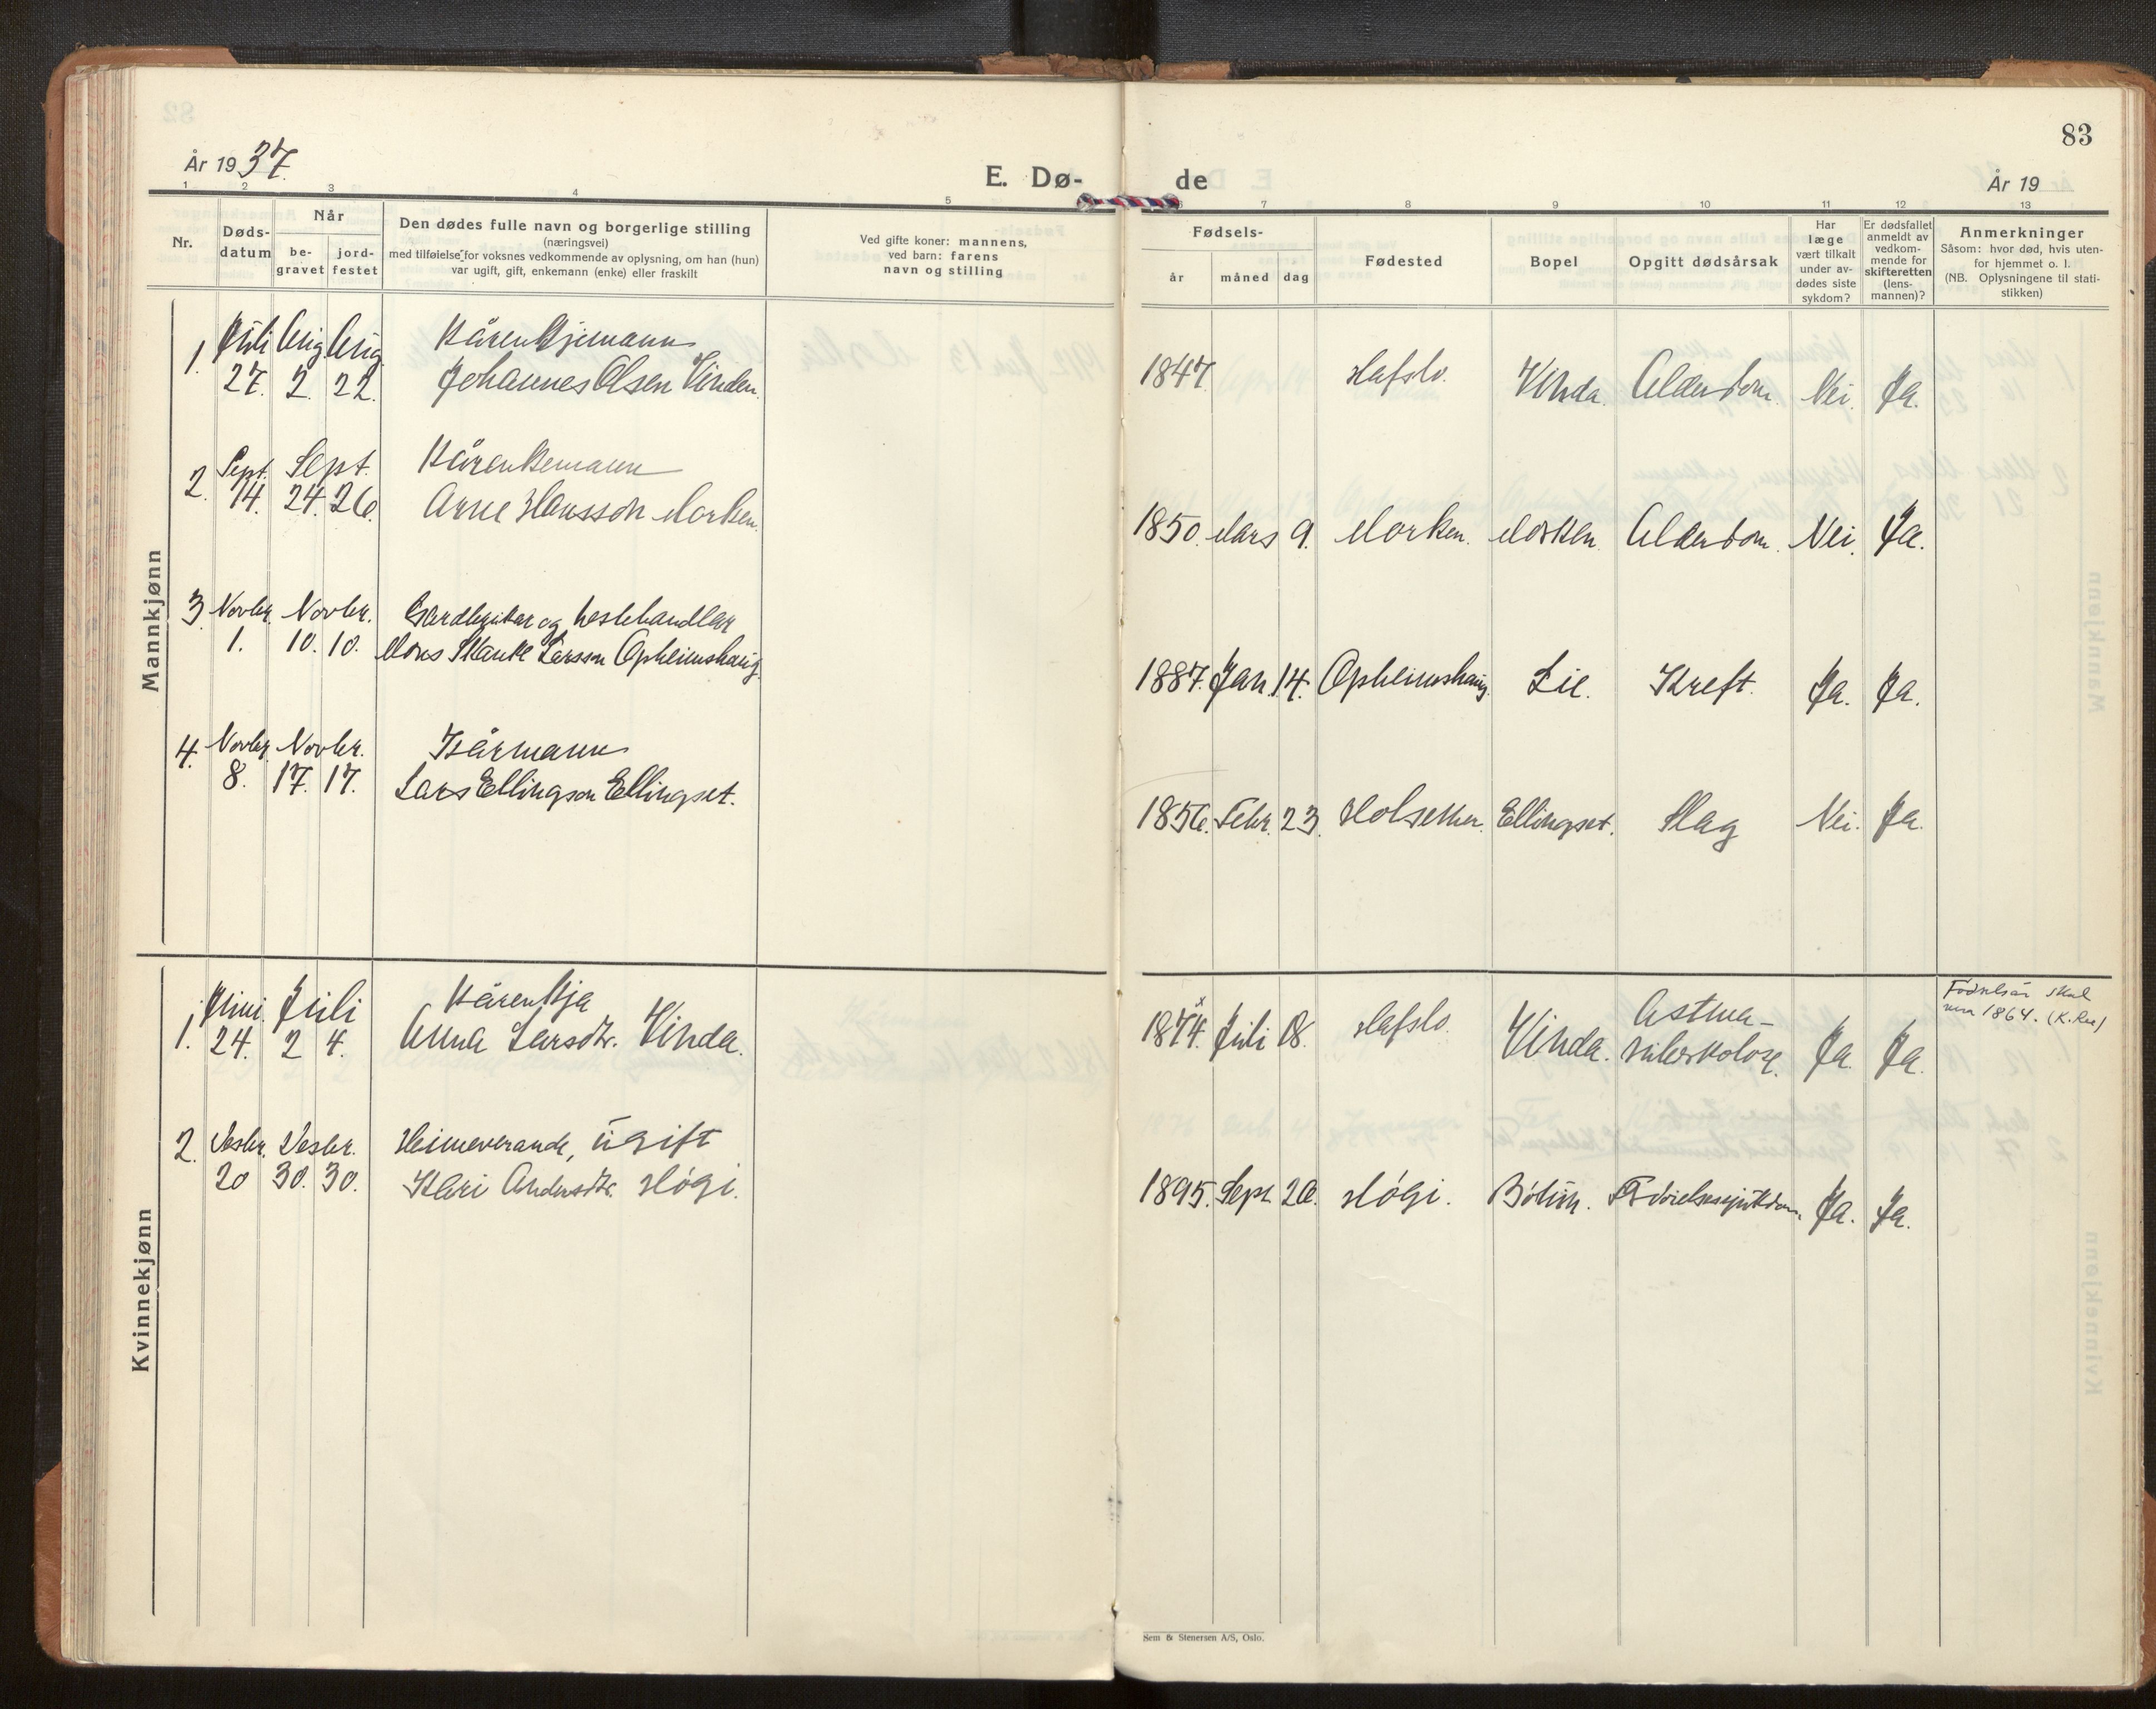 83
År 1937.
E. Dø-
de
År 19
1 2 3 4 5 6 7 8 9 10 11 12 13
Nr.
Døds-
datum
Når
be-
gravet
jord-
festet
Den dødes fulle navn og borgerlige stilling
(næringsvei)
med tilføielse for voksnes vedkommende av oplysning, om han (hun)
var ugift, gift, enkemann (enke) eller fraskilt
Ved gifte koner: mannens,
ved barn: farens
navn og stilling
Fødsels-
år
måned
dag
Fødested
Bopel
Opgitt dødsårsak
Har
læge
vært tilkalt
under av-
dødes siste
sykdom?
Er dødsfallet
anmeldt av
vedkom-
mende for
skifteretten
(lens-
mannen)?
Anmerkninger
Såsom: hvor død, hvis uten-
for hjemmet o. l.
(NB. Oplysningene til stati-
stikken)
Mannkjønn
1. Juli Aug. Aug.
27. 2. 22.
Johannes Olsen Vinden.
1847. Hafslo. Vinda. Alderdom. Nei. Ja.
2. Sept. Sept.
14. 24. 26.
Kårenkemann
Arne Hansson Morken.
1850. Mars 9. Morken. Morken. Alderdom. Nei. Ja.
3. Novbr. Novbr.
1. 10. 10.
Gardbrukar og hestehandlar
Mons Skauke Larsson Opheimshaug.
1887. Jan. 14. Opheimshaug. Lie. Kreft. Ja. Ja.
4. Novbr. Novbr.
8. 17. 17.
Kårmann
Lars Ellingson Ellingset.
1856. Febr. 23. Holsether. Ellingset. Slag Nei. Ja.
Kvinnekjønn
1. Juni. Juli
24. 2 4.
Kårenkja
Anna Larsdtr. Vinda.
1874. x Juli 18. Hafslo. Vinda. Astma-
tuberkolose. Ja. Ja.
Fødselsår skal
vera 1864. (K.Ree)
2. Desbr. Desbr.
20 30. 30.
Heimeverande, ugift
Kari Andersdtr. Høgi.
1895. Sept. 26. Høgi. Bötun. Ja. Ja.
Sem & Stenersen A/S, Oslo.